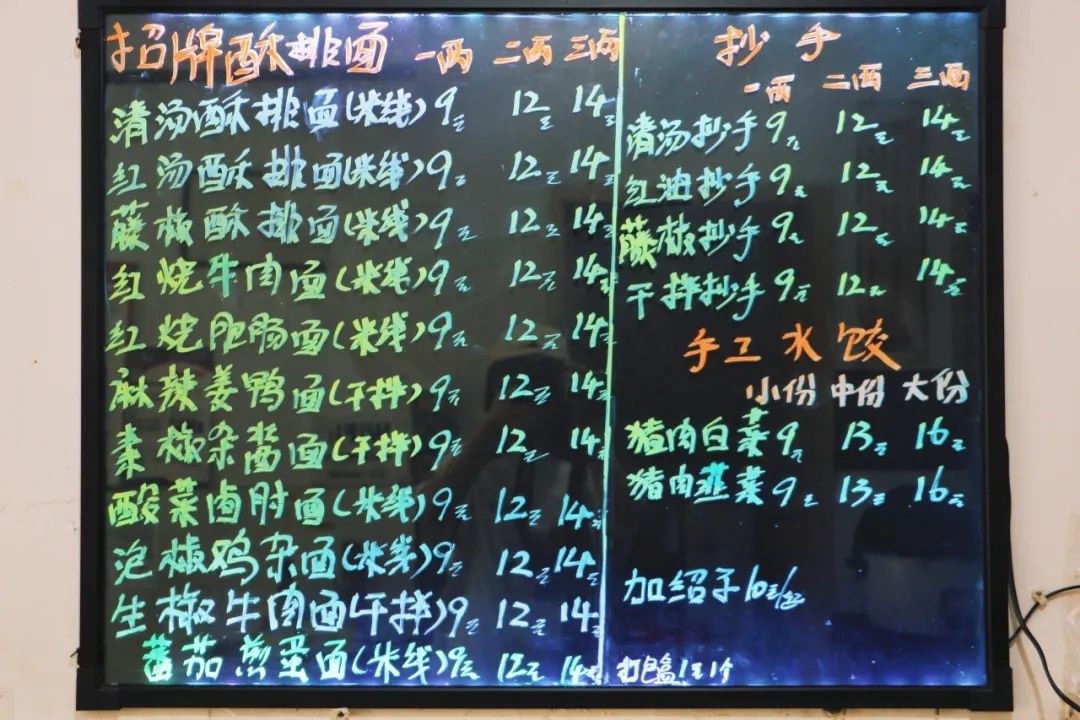 招牌酥排面 一两 二两 三两
清汤酥排面(米线) 9元 12元 14元
红汤酥排面(米线) 9元 12元 14元
藤椒酥排面(米线) 9元 12元 14元
红烧牛肉面(米线) 9元 12元 14元
红烧肥肠面(米线) 9元 12元 14元
麻辣姜鸭面(干拌) 9元 12元 14元
椒杂酱面(干拌) 9元 12元 14元
酸菜卤肘面(米线) 9元 12元 14元
泡椒鸡杂面(米线) 9元 12元 14元
生椒牛肉面(干拌) 9元 12元 14元
蕃茄煎蛋面(米线) 9元 12元 14元
抄手
一两 二两 三两
清汤抄手 9元 12元 14元
红油抄手 9元 12元 14元
藤椒抄手 9元 12元 14元
干拌抄手 9元 12元 14元
手工水饺
小份 中份 大份
猪肉白菜 9元 13元 16元
猪肉韭菜 9元 13元 16元
加绍子10元/
打包盒1元1个